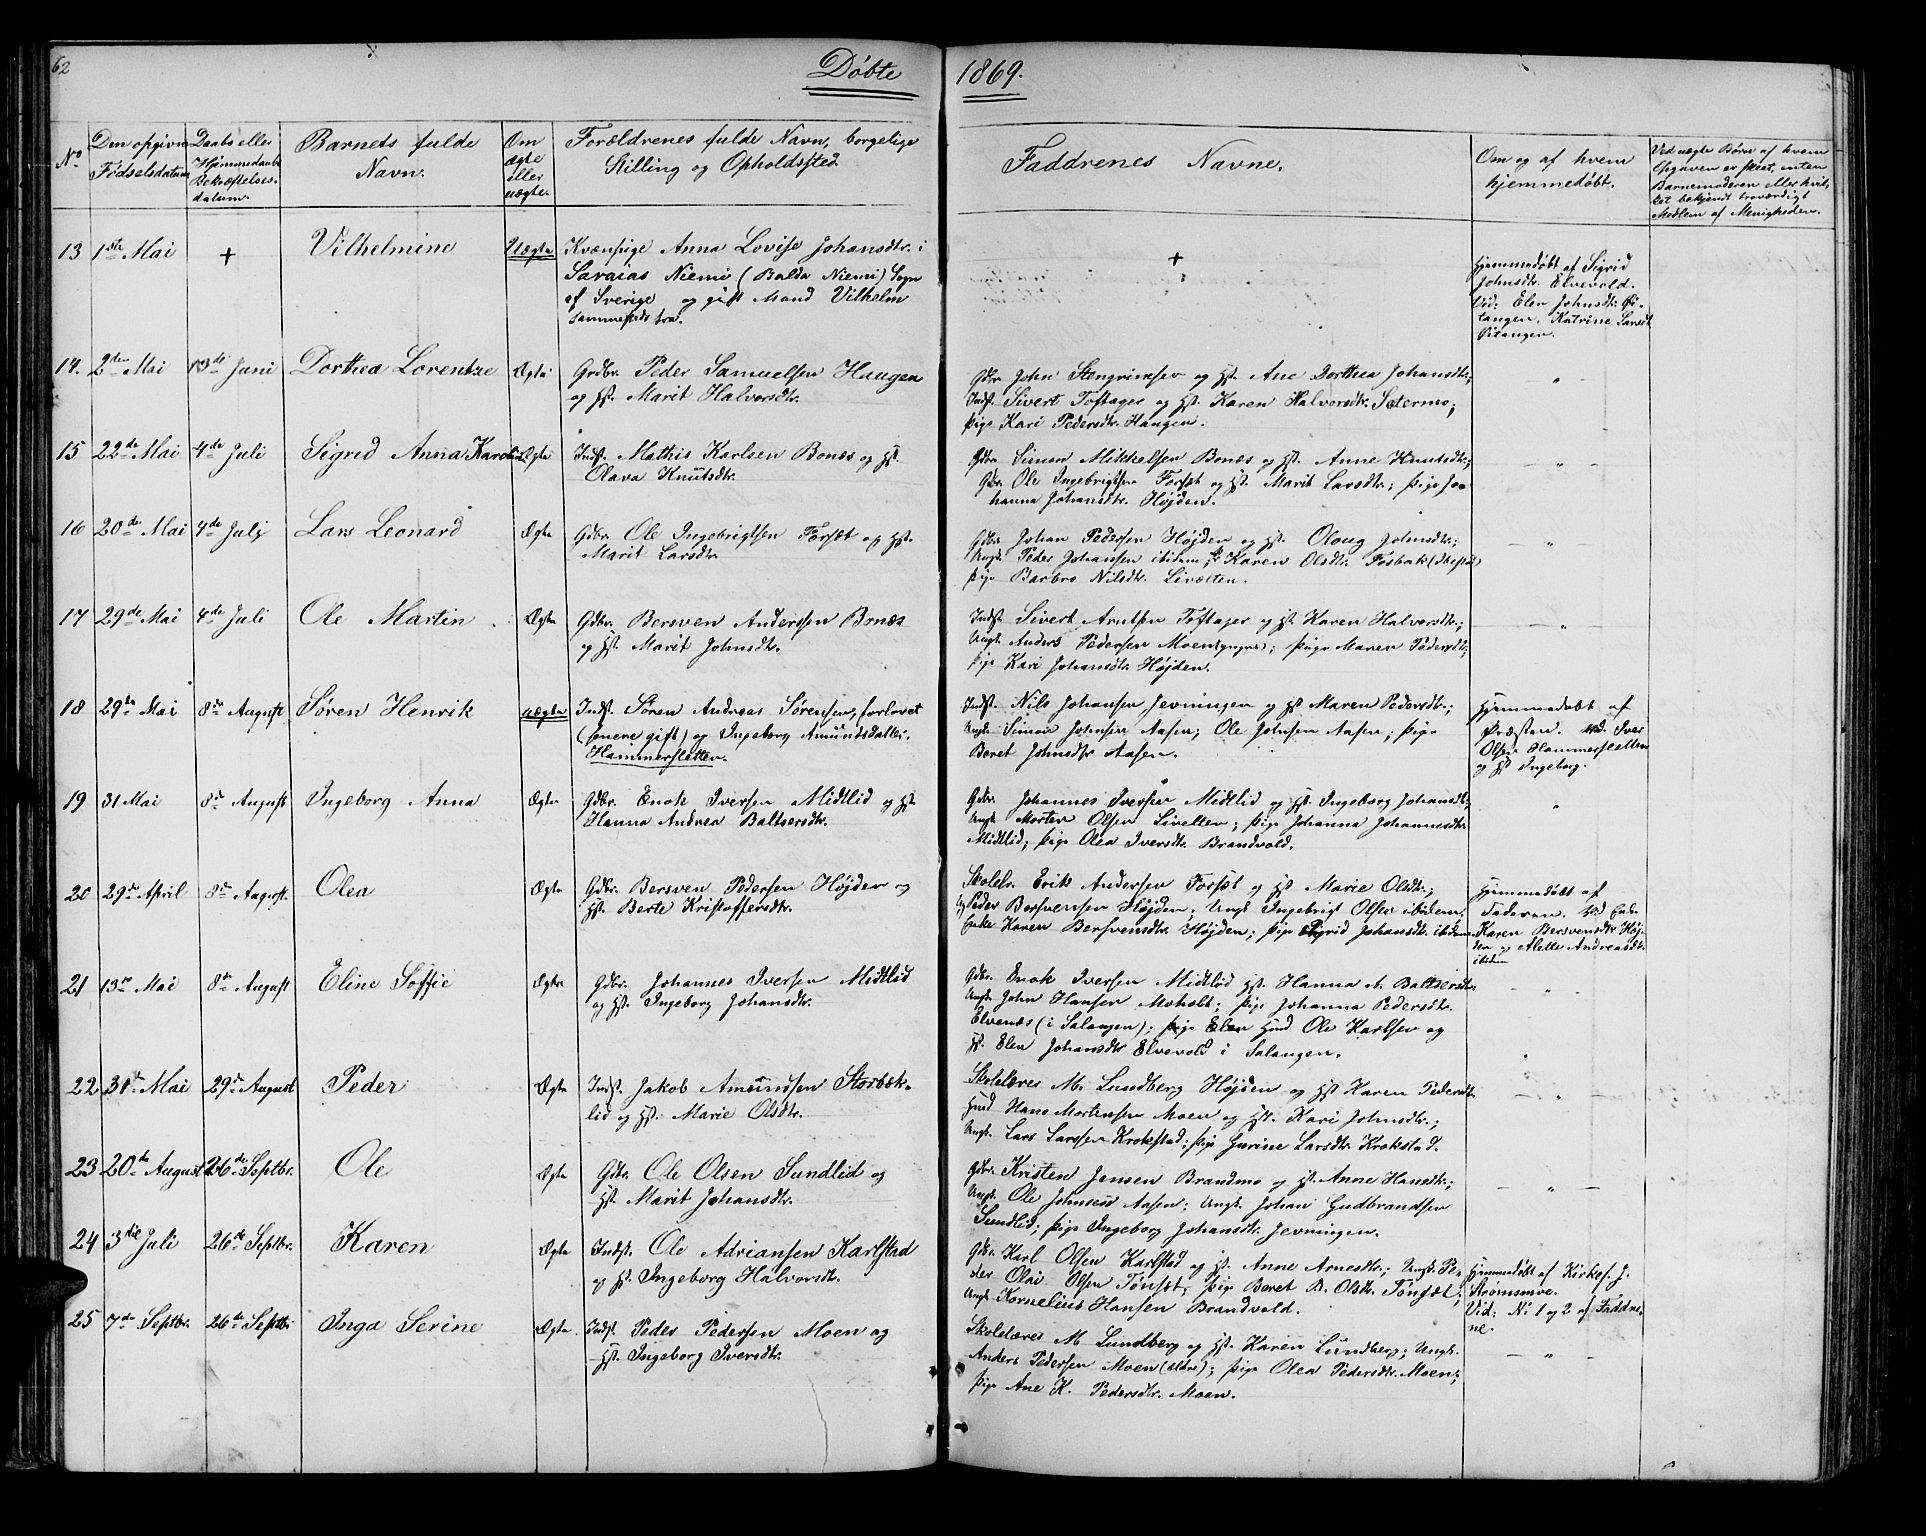 62
Døbte 1869.
No
Den opgivne Fødselsdatum
Daabs eller Hjemmedaabs Bekræftelses-datum.
Barnets fulde Navn.
Om ægte eller uægte.
Forældrenes fulde Navn, borgelige Stilling og Opholdssted.
Faddrenes Navne.
Om og af hvem hjemmedøbt.
Ved uægte Børn af hvem Opgaven er skeet, enten Barnemoderen eller hvilket bekjendt troværdigt Medlem af Menigheden.
13 1ste Mai + Vilhelmine Uægte Kvænpige Anna Lovise Johansdtr. i
Saraias Niemi (Balda Niemi) Sogn
af Sverige og gift Mand Vilhelm
sammesteds fra.
+
Hjemmedøbt af Sigrid
Johnsdtr. Elvevold.
Vid: Elen Johnsdtr.
Katrine Larsdt
14. 2den Mai 13de Juni Dorthea Lorentze Ægte Grdbr. Peder Samuelsen Haugen
og Hst. Marit Halvorsdtr.
Gdbr. John Stengrimsen og Hst. Ane Dorthea Johansdtr.;
Indst. Sivert Toftager og Hst. Karen Halvorsdtr. Sætermo;
Pige Kari Pedersdtr. Haugen.
— " —
15 22de Mai 4de Juli Sigrid Anna Karoline Ægte Indst. Mathis Karlsen Bonæs og Hst.
Olava Knutsdtr.
Gdbr. Simon Mikkelsen Bonæs og Hst. Anne Knutsdtr.;
Gdbr. Ole Ingebrigtsen Forsæt og Hst. Marit Larsdtr.; Pige Jo-
hanna Johansdtr. Højden.
— " —
16 20de Mai 4de Julj Lars Leonard Ægte Gdbr. Ole Ingebrigtsen Forsæt og Hst.
Marit Larsdtr.
Gdbr. Johan Pedersen Højden og Hst. Oloug Johnsdtr.;
Ungk. Peder Johansen ibidem; Karen Olsdtr. Fosbak (Ibestad)
Pige Barbro Nilsdtr.
— " —
17 29de Mai 4de Juli Ole Martin Ægte Gdbr. Bersven Anderssen Bonæs
og Hst. Marit Johnsdtr.
Indst. Sivert Arntsen Toftager og Hst Karen Halvorsdtr.;
Ungk. Anders Pedersen Moen (yngre); Pige Maren Pedersdtr.
Pige Kari Johansdtr. Højden.
— " —
18 29de Mai 8de August Søren Henrik uægte Indst. Søren Andreas Sørensen, forlovet
(senere gift) og Ingeborg Amundsdatter.
Hammersletten.
Indst. Nils Johansen Jevningen og Hst Maren Pedersdtr.;
Ungk. Simon Johnsen Aasen; Ole Johnsen Aasen; Pige
Beret Johnsdtr Aasen.
Hjemmedøbt af
Præsten. Vid. Iver
Olsen Hammersletten
og Hst Ingeborg.
19 31 Mai 8de August Ingeborg Anna Ægte Gdbr. Enok Iversen Midtlid og Hst
Hanna Andrea Baltsersdtr.
Gdbr. Johannes Iversen Midtlid og Hst. Ingeborg Johansdt;
Ungk. Morten Olsen; Pige Johanna Johannesdtr.
Midtlid; Pige Olea Iversdtr. Brandvold.
"
20 29de April 8de August. Olea Ægte Gdbr. Bersven Pedersen Højden og
Hst. Berte Kristoffersdtr.
Skolelr. Erik Andersen Forsæt og Hst Marie Olsdtr.;
Peder Bersvensen Højden; Ungk. Ingebrigt Olsen ibidem.
Enke Karen Bersvensdtr. Højden; Pige Sigrid Johansdtr. ibidem
Hjemmedøbt af
Faderen. Vid Enke
Karen Bersvensdtr Høj-
den og Alette Andreasdtr.
ibidem
21 13de Mai 8de August Eline Soffie Ægte Gdbr. Johannes Iversen Midtlid
og Hst. Ingeborg Johansdtr.
Gdbr. Enok Iversen Midtlid Hst. Hanna A. Baltsersdtr.
Ungk. John Hansen Moholt; Pige Johanna Pedersdtr.
Elvenæs (i Salangen); Pige Elen Hmd Ole Karlsen og
Hst. Elen Johansdtr Elvevold i Salangen.
— " —
22 31te Mai 29de August Peder Ægte Indst. Jakob Amundsen Storbæk-
lid og Hst. Marie Olsdtr.
Skolelærer M. Lundberg Højden og Hst Karen Pedersdtr.
Hmd Hans Mortensen Moen og Hst. Kari Johnsdtr.;
Ungk. Lars Larssen Krokstad; Pige Gurine Larsdtr. Krokstad.
— " —
23 20de August 26de Septbr. Ole Ægte Gdbr. Ole Olsen Sundlid og
Hst. Marit Johansdtr.
Gdbr. Kristen Jensen Brandmo og Hst. Anne Hansdtr.;
Ungk. Ole Johnsen Aasen; Ungk. Johan Gudbrandsen
Sundlid; Pige Ingeborg Johansdtr. Jevningen.
— " —
24 3die Juli 26de Septbr. Karen Ægte Indst. Ole Adriansen Karlstad
og Hst. Ingeborg Halvorsdtr.
Gdbr. Karl Olsen Karlstad og Hst. Anne Arnesdtr.; Ungk. Pe-
der Olai Olsen Tønsæt; Pige Beret B. Olsdtr. Tønsæt;
Ungk Kornelius Hansen Brandvold.
Hjemmedøbt af Kirkes. J.
Strømsmoe.
Vid: No 1 og 2 af Faddre-
ne.
25 7de Septbr. 26de Septbr Inga Serine Ægte. Indst. Peder Pedersen Moen og
Hst. Ingeborg Iversdtr.
Skolelærer M. Lundberg og Hst. Karen Lundberg; Ungk.
Anders Pedersen Moen (ældre); Pige Olea Pedersdtr. Moen;
Pige Ane K. Pedersdtr. Moen.
— " —